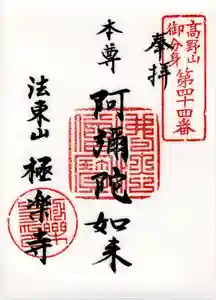 高野山
御分身
第四十四番
奉拝
本尊
阿彌陀如来
法東山 極楽寺